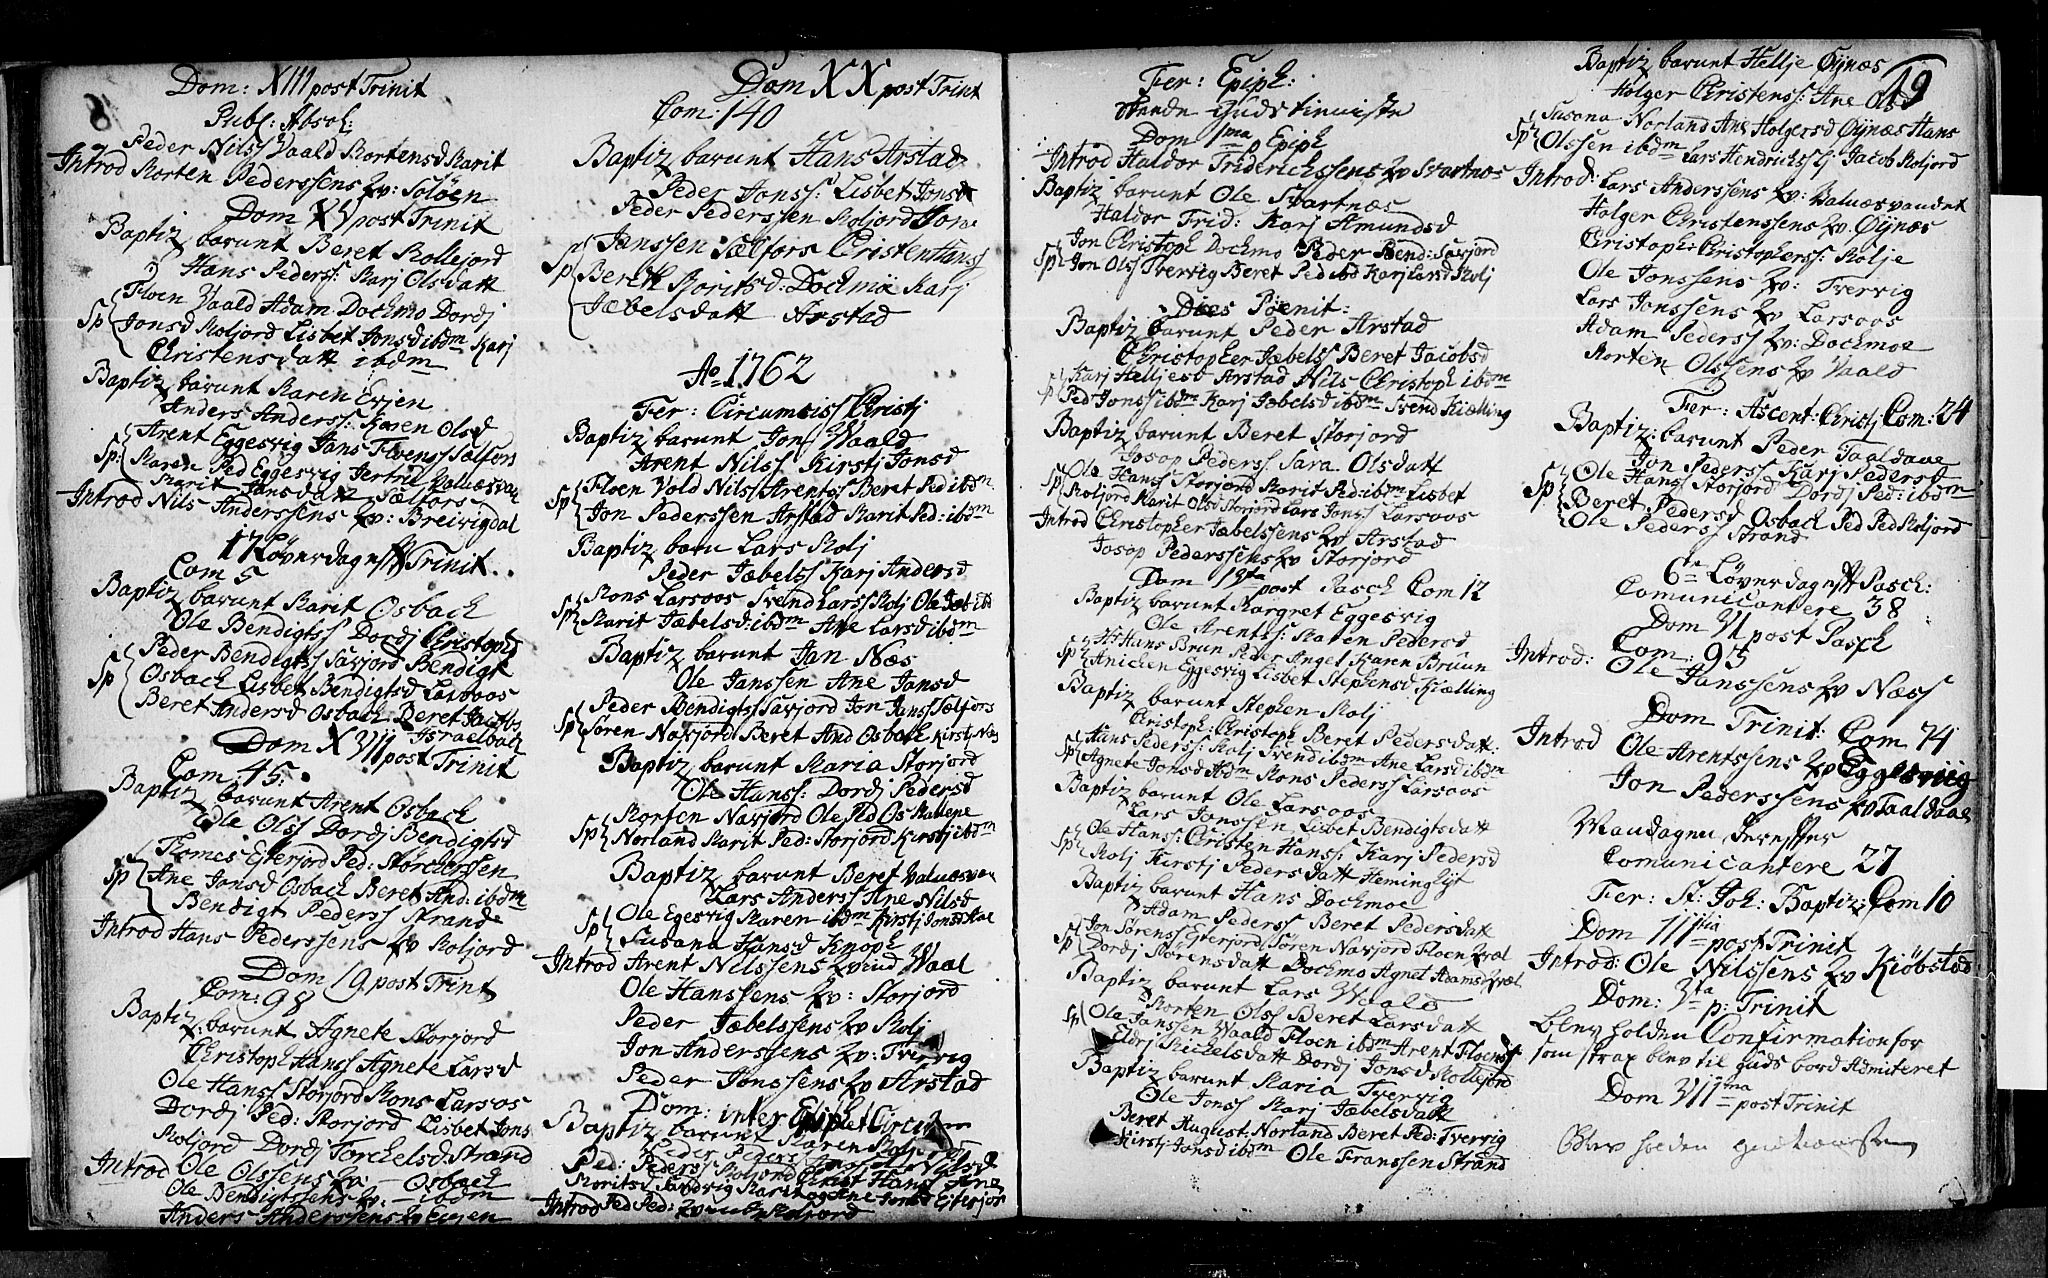 Dom: XIII post Trinit
Publ: Absol:
Peder Nilss Vaald Mortensd Marit
Introd Morten Pederssens Qv: Soløen
Dom XV post Trinit
Baptiz barunt Beret Mollejord
Hans Pederss: Karj Olsdatt
Floen Vaald Adam Dochmo Dordj
Sp Jonsd Moljord Lisbet Jonsd ibdm Karj
Christensdatt ibdm
Baptiz barunt Karen Evjen
Anders Anderss: Karen Olsd
Arent Eggesvig Jans Floenss Sælfors
Sp: Karen Ped Eggesvig Jertrud Valnæsvan
Marit Jansdatt Sælfors
Introd Nils Anderssens Qv: Breivigdal
17 Løverdag eft Trinit
Com 5
Baptiz barunt Marit Osbach
Ole Bendigtss Dordj Christophd
Peder Bendigtss Saxjord Bendigt
Sp Osbach Lisbet Bendigtsd Larsoos
Beret Andersd Osbach Beret Jacobs
Israelbach
Dom XVII post Trinit
Com 45
Baptiz barunt Arent Osbach
Ole Olss Dordj Bendigtsd
Tomes Esterjord Ped: Storcherssen
Sp Ane Jonsd Osbach Beret And: ibdm
Bendigt Pederss Strand
Introd Hans Pederssens Qv Moljord
Dom 19 post Trinit
Com: 98
Baptiz barunt Agnete Storjord
Christoph Hanss Agnete Larsd
Ole Hanss Storjord Mons Larsoos
Dordj Ped: Storjord Lisbet Jons
Moljord Dordj Torchelsd Strand
Introd Ole Olssens Qv Osbach
Ole Bendigtssens Qv: ibdm
Anders Anderssens Qv Evjen
Dom XX post Trinit
Com 140
Baptiz barunt Hans Arstad
Peder Jonss: Lisbet Jonsd
Peder Pederssen Moljord Jona
Janssen Sælfors Cristen Hanss
Sp Beret Moritsd: Dochmo Karj
Jæbelsdatt Arstad
Ao 1762
Fer: Circumciss Christj
Baptiz barunt Jon Waald
Arent Nilss Kirstj Jonsd
Sp Floen Vold Nils Arentss Beret Ped ibdm
Jon Pederssen Arstad Marit Ped: ibdm
Baptiz baru Lars Molj
Peder Jæbelss Karj Andersd
Sp Mons Larsoos Svend Larss Molj Ole Jæb ibd
Marit Jæbelsd: ibdm Ane Larsd ibdm
Baptiz barunt Jan Næs
Ole Janssen Ane Jonsd
Peder Bendigtss Saxjord Jon Janss Sælfors
Sp Søren Naxjord Beret And Osbach Kirstj Næs
Baptiz barunt Maria Storjord
Ole Hanss: Dordj Pedersd
Morten Naxjord Ole Ped Os Malene
Sp Norland Marit Ped: Storjord Kirstj ibdm
Baptiz barunt Beret Valnæsvan
Lars Anderss Ane Nilsd
Sp Ole Egesvig Maren ibdm Kirstj Jonsd
Susana Hansd Knoph
Introd Arent Nilssens Qvind Vaal
Ole Hanssens Qv: Storjord
Peder Jæbelssens Qv Molj
Jon Anderssens Qv: Tverrig
Peder Jonssens Qv Arstad
Dom: inter Epiph et Circum
Baptiz barunt Maren Moljord
Peder Pederss
Ped: Pederss Moljord Christ Hanss Ane
Moritsd Sandvig Marit
Introd Ped Ped: Qvind Moljord
19
Fer: Epiph:
skeede Gudstieniste
Dom 1ma p Epiph
Introd Haldor Friderichssens Qv Svartnæs
Baptiz barunt Ole Svartnæs
Haldor Frid: Karj Amundsd
Jon Christoph Dochmo Peder Bend: Saxjord
Sp Jon Olss Tverrig Beret Ped ibd Karj Larsd Molj
Dies Poenit:
Baptiz barunt Peder Arstad
Christopher Jæbelss Beret Jacobsd
Karj Helljesd Arstad Nils Christoph ibdm
Sp Ped Jonss ibdm Karj Jæbelsd ibdm Svend Kiælling
Baptiz barunt Beret Storjord
Josop Pederss Sara Olsdatt
Ole Hanss Storjord Marit Ped: ibdm Lisbet
Sp Moljord Marit Olsd Storjord Lars Jonss Larsoos
Introd Christopher Jæbelssens Qv Arstad
Josop Pederssens Qv Storjord
Dom 1sta post Pasch Com 12
Baptiz barunt Margret Eggesvig
Ole Arentss: Maren Pedersd
Hr Hans Brun Peder Angel Karen Bruun
Sp Anichen Eggesvig Lisbet Stephensd Kiælling
Baptiz barunt Stephen Molj
Christoph: Christoph Beret Pedersdatt:
Hans Pederss: Molj Svend ibdm Ane Larsd ibdm
Sp Agnete Jonsd ibdm Mons Pederss Larsoos
Baptiz barunt Ole Larsoos
Lars Jonssen Lisbet Bendigtsdatt
Ole Hanss: Christen Hanss: Karj Pedersd
Sp Molj Kirstj Pedersdatt Hemingljt
Baptiz barunt Hans Dochmoe
Adam Pederss Beret Pedersdatt
Jon Sørenss Esterjord Søren Naxjord Floen Qval
Sp Dordj Sørensdatt Dochmo Agnet Adams Qval
Baptiz barunt Lars Waald
Morten Olss Beret Larsdatt
Sp Ole Janssen Vaald Floen ibdm Arent Floenss
Eldrj Michelsdatt Dordj Jonsd Mollejord
Baptiz barunt Maria Tverrig
Ole Jonss Karj Jæbelsdatt
Beret August: Norland Beret Ped: Tverrig
Kirstj Jonsd ibdm Ole Franssen Strand
Baptiz barunt Hellje Øijnæs
Holger Christenss: Ane Olsd
Susana Norland Ane Holgersd Øijnæs Hans
Sp Olssen ibdm Lars Hendrichss Jacob Moljord
Introd: Lars Anderssens Qv: Valnæsvandet
Holger Christenssens Qv Øijnæs
Christoph: Christopherss: Molje
Ole Jonssens Qv: Tverrig
Lars Jonssens Qv Larsoos
Adam Pederss Qv: Dochmoe
Morten Olssens Qv Vaald
Fer: Ascent: Christj Com: 24
Baptiz: barunt Peder Taaldaae
Jon Pederss Karj Pedersd
Ole Hanss Storjord Dordj Ped: ibdm
Sp Beret Pedersd Osbach Ped Ped Moljord
Ole Pederss Strand
6te Løverdag eft Pasch:
Comunicantere 38
Dom VI post Pasch
Com: 95
Introd: Ole Janssens Qv Næss
Dom Trinit: Com 74
Introd Ole Arentssens Qv Eggesviig
Jon Pederssens Qv Taaldaae
Mandagen derefter
Comunicantere 27
Fer: St: Joh: Baptiz: Com 10
Dom IIItia post Trinit
Introd: Ole Nilssens Qv Kiøbstad
Dom: Vta p: Trinit
blev holden Confirmation for
som strax blev til Guds bord Admiteret
Dom VIIma post Trinit
Blev holden gudstienesten